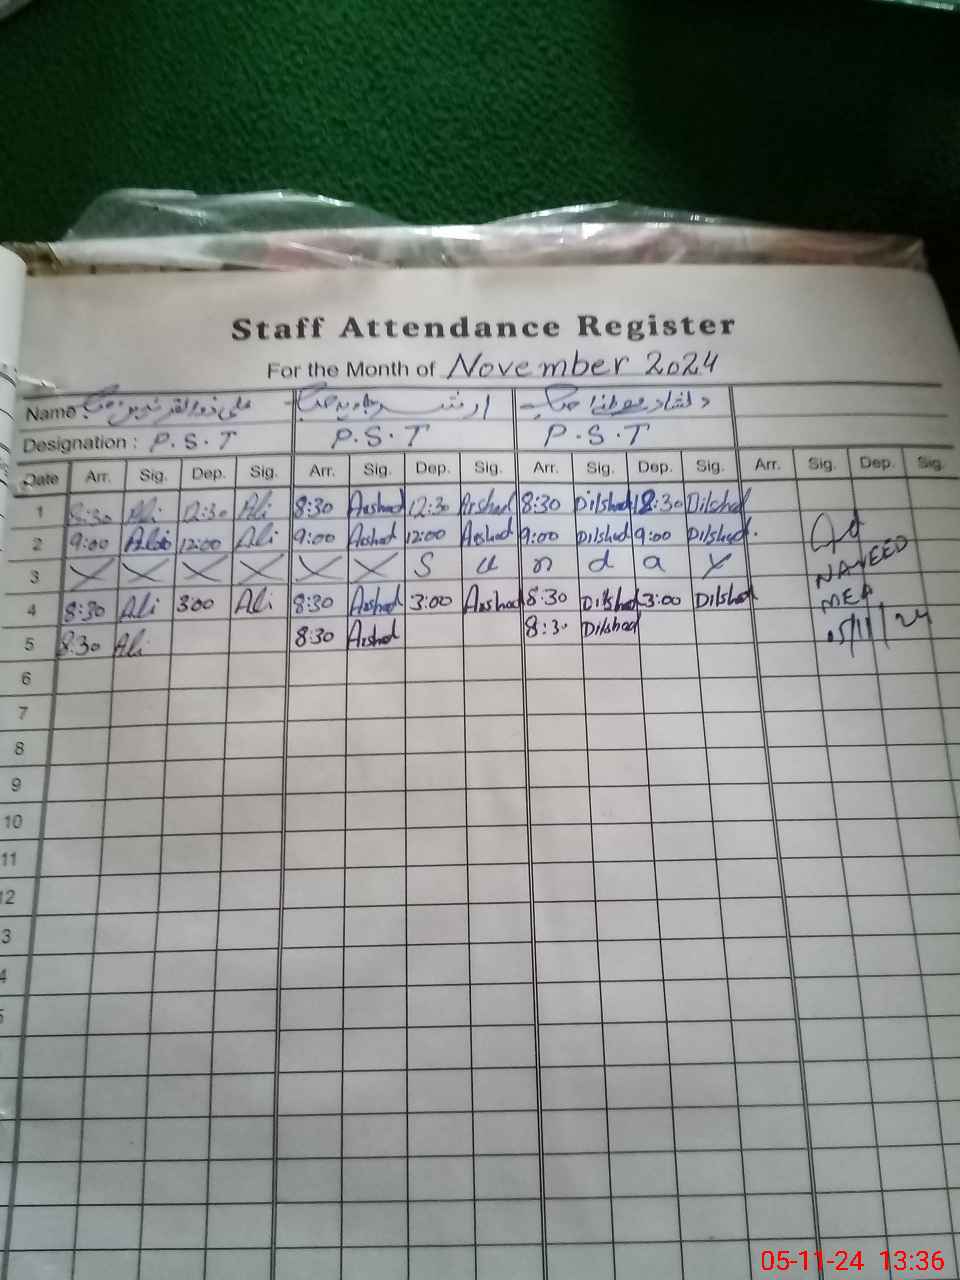 Staff Attendance Register
For the Month of November 2024
Name علی ذوالقرنین صاحب ارشد جاوید صاحب دلشاد صاحب
Designation : P.S.T P.S.T P.S.T
Date Arr. Sig. Dep. Sig. Arr. Sig. Dep. Sig. Arr. Sig. Dep. Sig. Arr. Sig. Dep. Sig.
1 8:30 Ali 12:30 Ali 8:30 Arshad 12:30 Arshad 8:30 Dilshad 12:30 Dilshad
2 9:00 12:00 Ali 9:00 Arshad 12:00 Arshad 9:00 Dilshad 9:00 Dilshad.
3 X X X X X X S u n d a y
4 8:30 Ali 3:00 Ali 8:30 Arshad 3:00 Arshad 8:30 Dilshad 3:00 Dilshad
5 8:30 Ali 8:30 Arshad 8:30 Dilshad
NAVEED
MEA
05/11/24
6
7
8
9
10
11
12
3
4
5
05-11-24 13:36